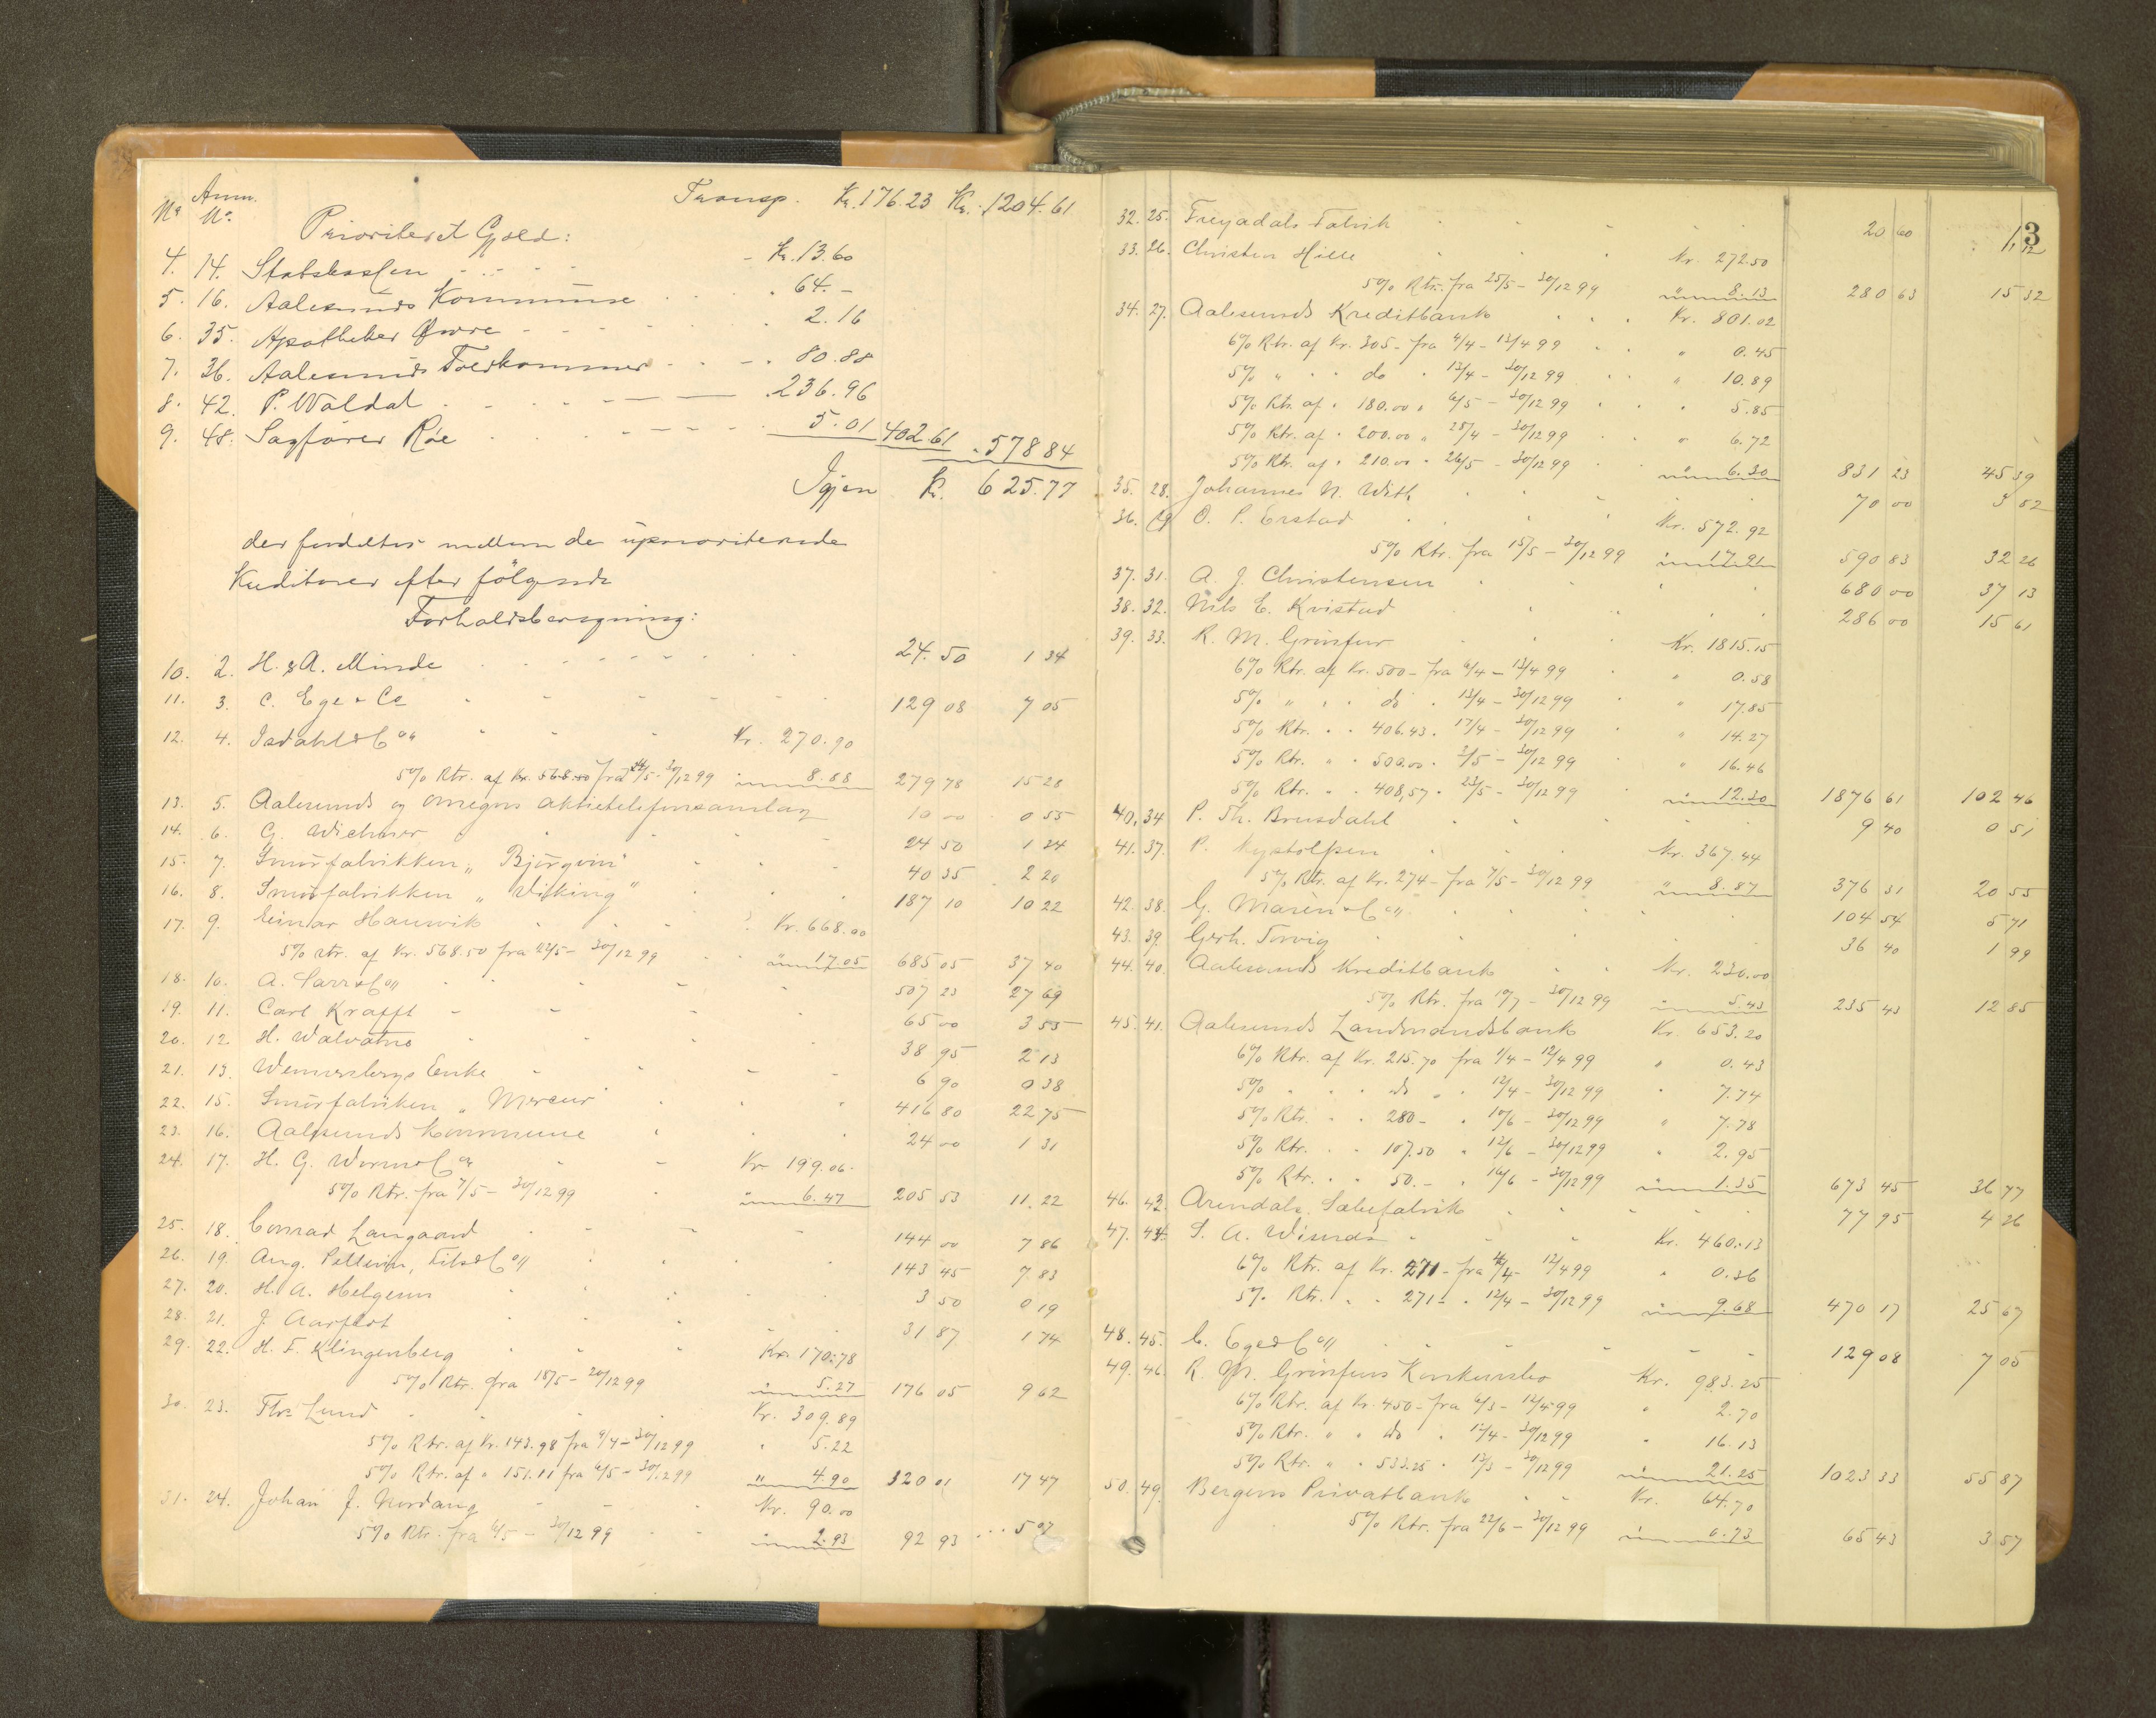 Anm.
No. No. Transp. Kr. 176.23 Kr. 1204.61
Prioriteret Gjæld:
4. 14. Statskassen Kr. 13.60
5. 16. Aalesunds Kommune 64.-
6. 35. Apotheker Øwre 2.16
7. 36. Aalesunds Toldkammer 80.88
8. 42. P. Waldal 236.96
9. 48. Sagfører Röe 5.01 402.61 578 84
Igjen Kr. 625.77
der fordeltes mellem de uprioriterede
Kreditorer efter følgende
Forholdsberegning:
10. 2. H. & A. Minde 24.50 1 34
11. 3. C. Ege & Co 129 08 7 05
12. 4. Isdahl & Co Kr. 270.90
5% Rtr. af Kr. 568.50 fra 24/5 - 30/12 99 " 8.88 279 78 15 28
13. 5. Aalesunds og omegns aktietelefonsamlag 10 00 0 55
14. 6. G. Wichmer 24 50 1 34
15. 7. Snørfabrikken "Bjørgvin" 40 35 2 20
16. 8. Snørfabrikken "Wiking" 187 10 10 22
17. 9. Einar Hauwik Kr. 668.00
5% rtr. af Kr. 568.50 fra 22/5 - 30/12 99 " 17.05 685 05 37 40
18. 10. A. Sarr & Co 507 23 27 69
19. 11. Carl Krafft 65 00 3 55
20. 12. H. Walvatne 38 95 2 13
21. 13. Wennersbergs Enke 6 90 0 38
22. 15. Snørfabriken "Mercur" 416 80 22 75
23. 16. Aalesunds Kommune 24 00 1 31
24. 17. H. G. Worm & Co Kr 199.06
5% Rtr. fra 7/5 - 30/12 99 " 6.47 205 53 11.22
25. 18. Conrad Langaard 144 00 7 86
26. 19. Aug. Pellerin, Fils & Co 143 45 7.83
27. 20. H. A. Helgesen 3 50 0 19
28. 21. J. Aarflot 31 87 1 74
29. 22. H. F. Klingenberg Kr. 170.78
5% Rtr. fra 18/5 - 30/12 99 " 5.27 176 05 9 62
30. 23. Ths Lund Kr. 309.89
5% Rtr. af Kr. 143.98 fra 9/4 - 30/12 99 " 5.22
5% Rtr. af " 151.11 fra 6/5 - 30/12 99 " 4.90 320 01 17 47
31. 24. Johan J. Nordang Kr. 90.00
5% Rtr. fra 6/5 - 30/12 99 " 2.93 92 93 5 07
3
32. 25. Freyadals Fabrik 20 60 1,12
33. 26. Christen Hille Kr. 272.50
5% Rtr. fra 25/5 - 30/12 99 " 8.13 280 63 15 32
34. 27. Aalesunds Kreditbank Kr. 801.02
6% Rtr. af Kr. 305- fra 4/4 - 13/4 99 " 0.45
5% " " do " 13/4 - 30/12 99 " 10.89
5% Rtr. af " 180.00 " 6/5 - 30/12 99 " 5.85
5% Rtr. af " 200.00 " 28/4 - 30/12 99 " 6.72
5% Rtr. af " 210.00 " 26/5 - 30/12 99 " 6.30 831 23 45 39
35. 28. Johannes N. With 70 00 3 82
36. 29 O. P. Erstad Kr. 572.92
5% Rtr. fra 15/5 - 30/12 99 " 17.91 590 83 32 26
37. 31. A. J. Christensen 680 00 37 13
38. 32. Nils E. Kvistad 286 00 15 61
39. 33. R. M. Grinfur Kr. 1815.15
6% Rtr. af Kr. 500- fra 6/4 - 13/4 99 " 0.58
5% " " do " 13/4 - 30/12 99 " 17.85
5% Rtr. " " 406.43 " 17/4 - 30/12 99 " 14.27
5% Rtr. " " 500.00 " 3/5 - 30/12 99 " 16.46
5% Rtr. " " 408,57 " 23/5 - 30/12 99 " 12.30 1876 61 102 46
40. 34 P. Th. Brusdahl 9 40 0 51
41. 37. P. Kr. 367.44
5% Rtr. af Kr. 274- fra 7/5 - 30/12 99 " 8.87 376 31 20 55
42. 38. G. Maren & Co 104 54 5 71
43. 39. Gerh. Torvig 36 40 1 99
44. 40. Aalesunds Kreditbank Kr. 230.00
5% Rtr. fra 10/7 - 30/12 99 " 5.43 235 43 12 85
45. 41. Aalesunds Landmandsbank Kr. 653.20
6% Rtr. af Kr. 215.70 fra 1/4 - 12/4 99 " 0.43
5% " " do " 12/4 - 30/12 99 " 7.74
5% Rtr. " " 280- " 10/6 - 30/12 99 " 7.78
5% Rtr. " " 107.50 " 12/6 - 30/12 99 " 2.95
5% Rtr. " " 50.- " 16/6 - 30/12 99 " 1.35 673 45 36 77
46. 43. Arendals Sæbefabrik 77 95 4 26
47. 44. S. A. Kr. 460.13
6% Rtr. af Kr. 271- fra 4/4 - 12/4 99 " 0.36
5% Rtr. " " 271- " 12/4 - 30/12 99 " 9.68 470 17 25 67
48. 45. C. Ege & Co 129 08 7 05
49. 46. R. M. Grinfurs Konkursbo Kr. 983.25
6% Rtr. af Kr. 450- fra 6/3 - 12/4 99 " 2.70
5% Rtr. " " do " 12/4 - 30/12 99 " 16.13
5% Rtr. " " 533.25 " 13/3 - 30/12 99 " 21.25 1023 33 55 87
50. 49. Bergens Privatbank Kr. 64.70
5% Rtr. fra 22/6 - 30/12 99 " 0.73 65 43 3 57